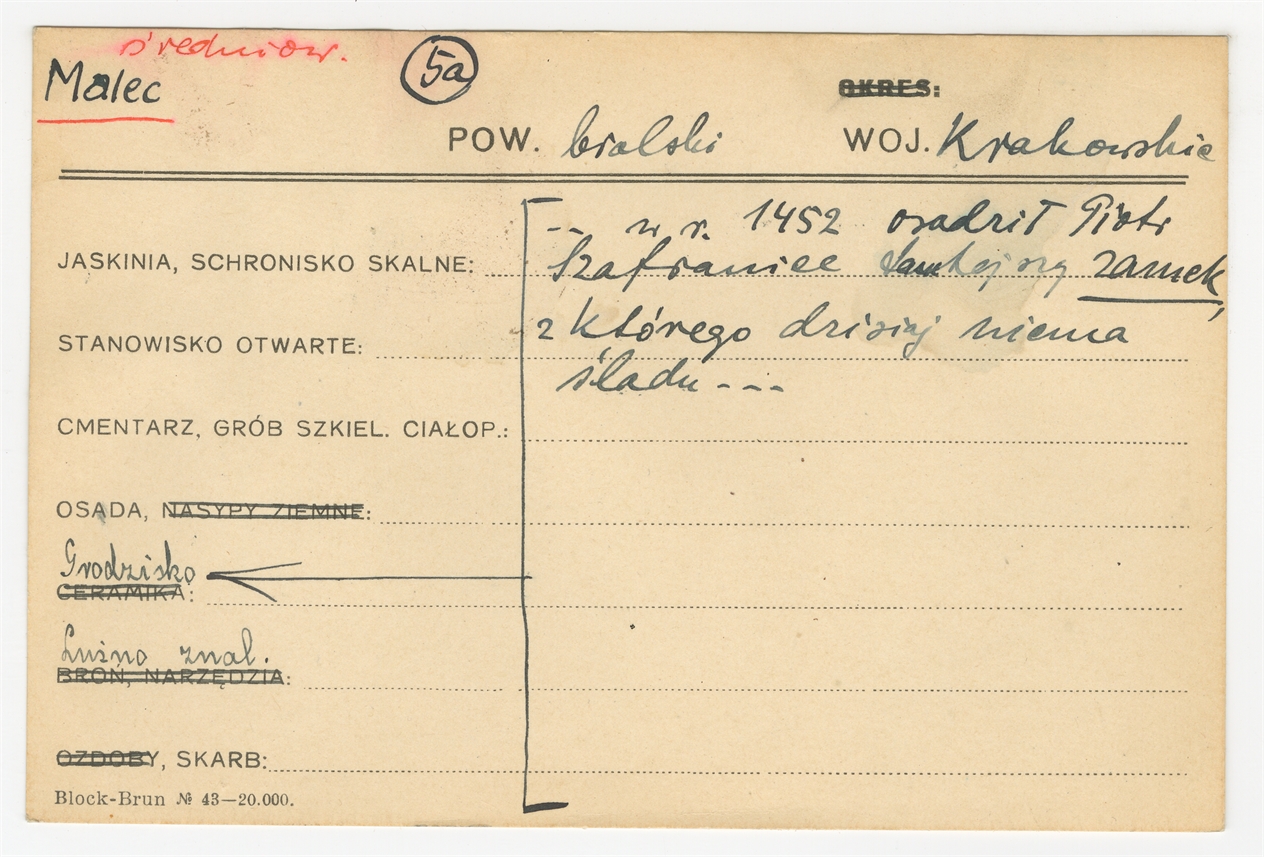 średniow.
Malec
5a
OKRES:
POW. bialski WOJ. Krakowskie
-- w r. 1452 osadził Piotr
JASKINIA, SCHRONISKO SKALNE: Szafraniec tamtejszy zamek,
z którego dzisiaj niema
STANOWISKO OTWARTE:
śladu ---
CMENTARZ, GRÓB SZKIEL. CIAŁOP.:
OSADA, NASYPY ZIEMNE:
Grodzisko
CERAMIKA:
Luźno znal.
BROŃ, NARZĘDZIA:
OZDOBY, SKARB:
Block-Brun № 43—20.000.